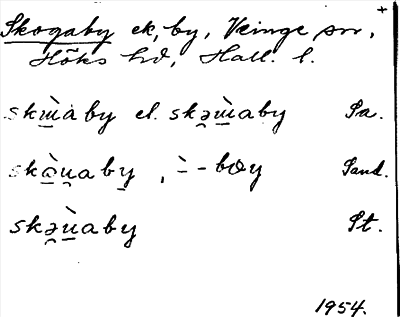 +
Skogaby ek, by, Veinge sn,
Höks hd, Hall. l.
skɯ̀aby el. skəɯ̀aby Sa.
skàu̯aby , ̀- - bɷy Sand.
skəùaby St.
1954.